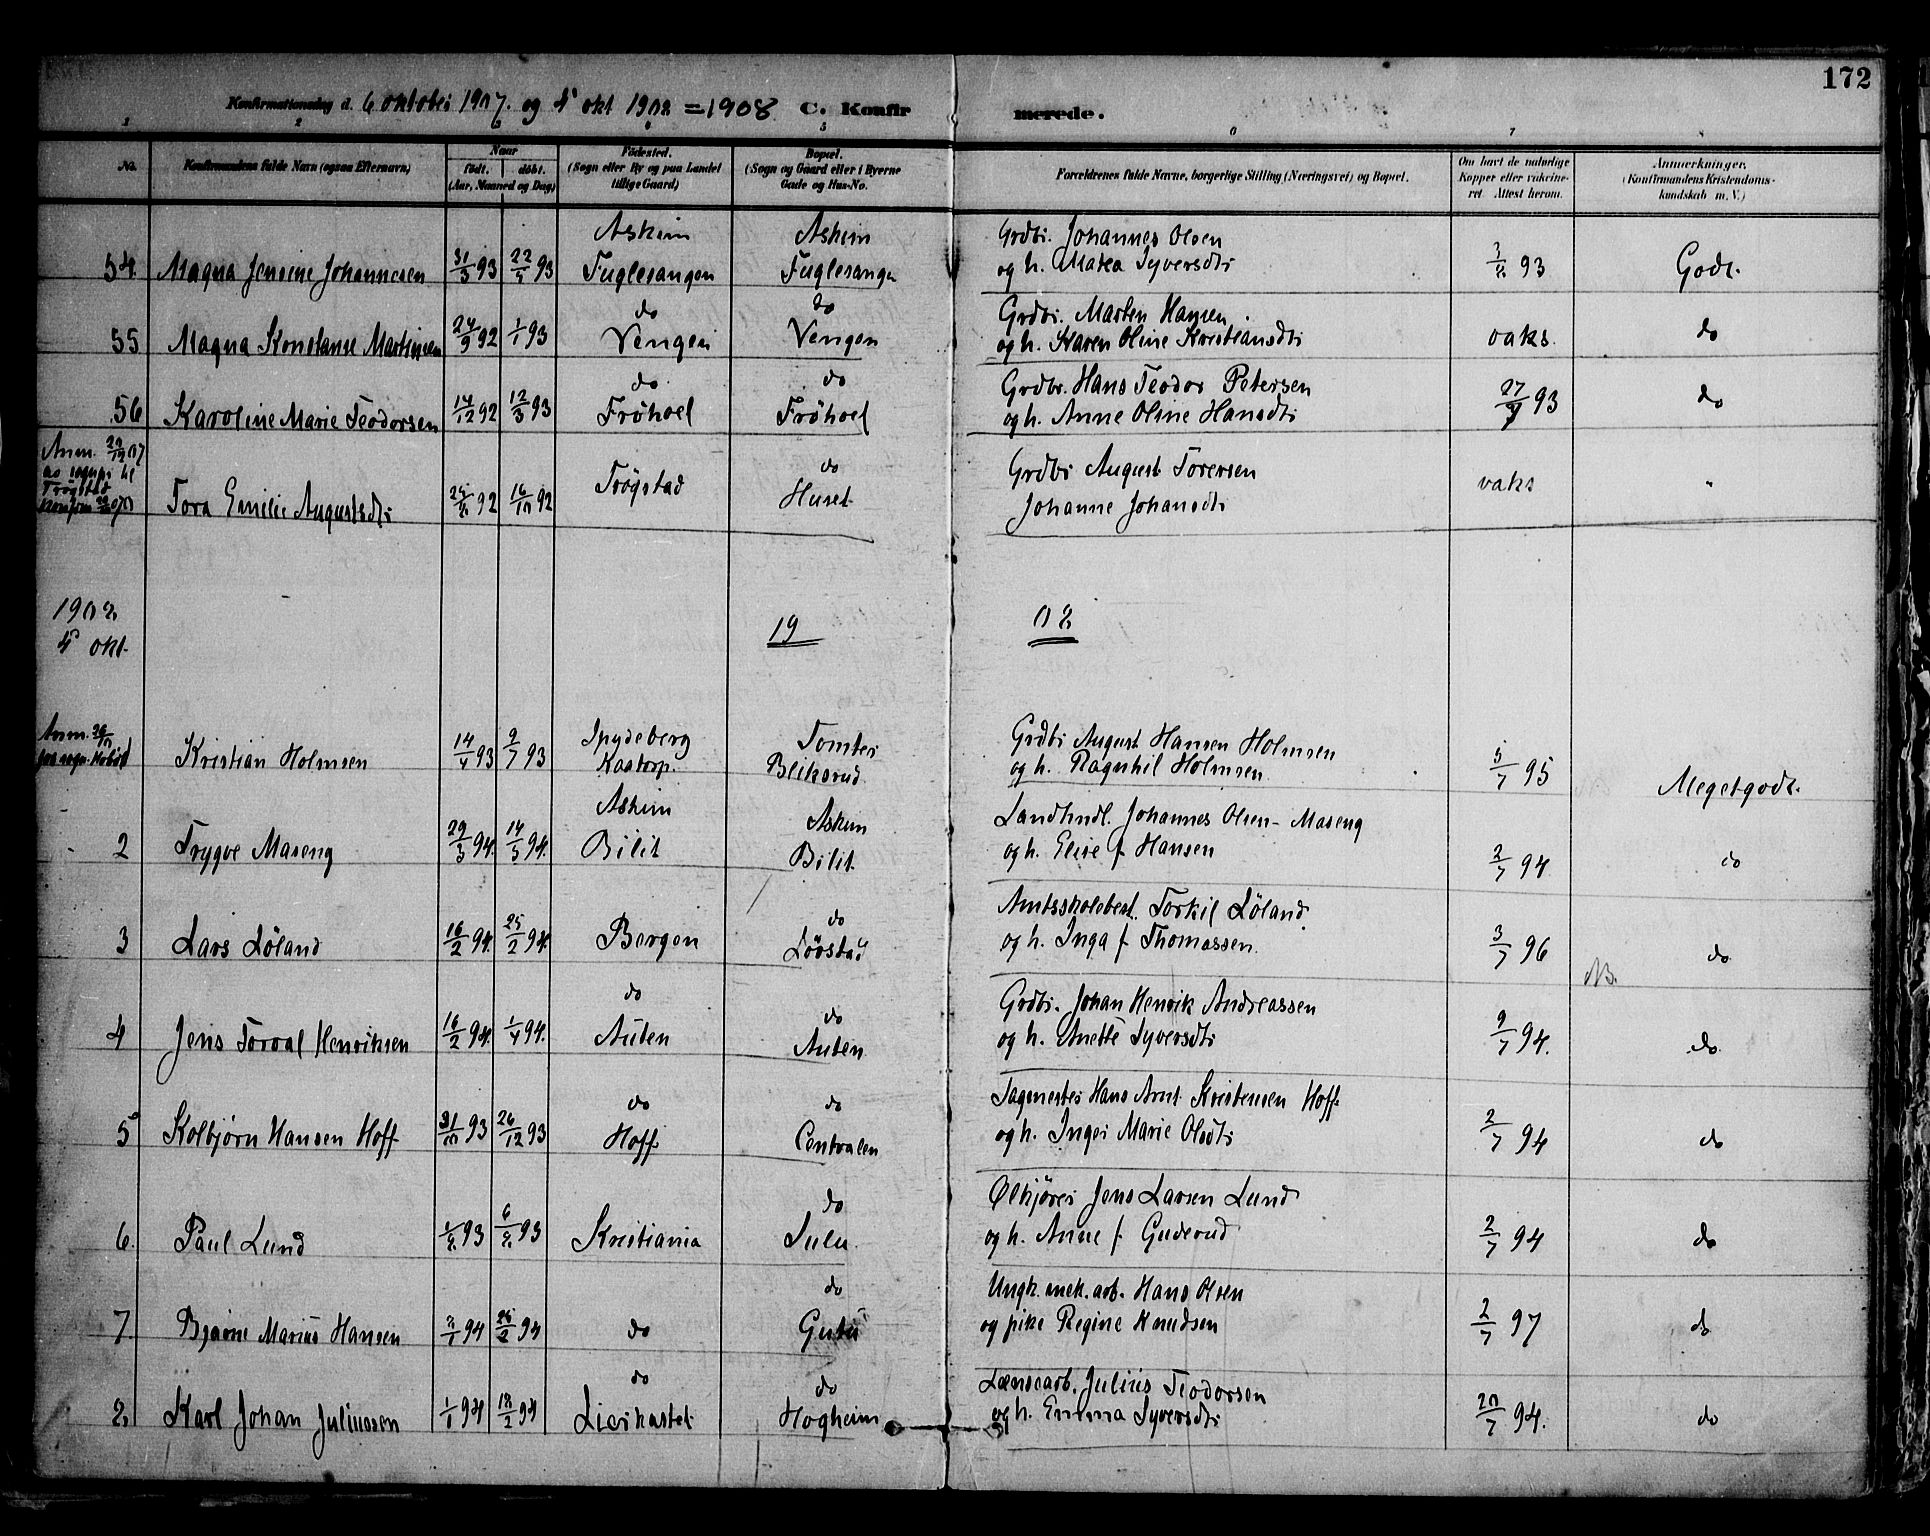 172
Konfirmationsdag d. 6 oktober 1907. og 4 okt 1908 = 1908 C. Konfirmerede.
1 2 3 4 5 6 7
No. Konfirmandens fulde Navn (ogsaa Efternavn) Naar født. døbt. (Aar, Maaned og Dag) Fødested. (Sogn eller By og paa Landet tillige Gaard) Bopæl. (Sogn og Gaard eller i Byerne Gade og Hus-No. Forældrenes fulde Navne, borgerlige Stilling (Næringsvei) og Bopæl. Om havt de naturlige Kopper eller vakcineret. Attest herom. Anmærkninger. (Konfirmandens Kristendomskundskab m. V.)
Askim Askim Grdbr. Johannes Olsen
54 Magna Jensine Johannesen 31/3 93 22/5 93 Fuglesangen Fuglesangen og h. Matea Syversdtr 3/8 93 Godt.
do do Grdbr. Marten Hansen
55 Magna Konstanse Martinsen 24/9 92 1/1 93 Vengen Vengen og h. Karen Oline Kristiansdtr vaks. do
do do Grdbr. Hans Teodor Petersen
56 Karoline Marie Teodorsen 14/12 92 12/3 93 Frøhoel Frøhoel og h. Anne Oline Hansdtr 27/7 93 do
Anm.
Trøgstad do Grdbr August Torersen
Tora Emilie Augustsdtr 24/8 92 16/10 92 Trøgstad Huset Johanne Johansdtr vaks "
1908
4 okt. 19 08
Anm. 26/10 Spydeberg Tomter Grdbr August Hansen Holmsen
Kristian Holmsen 14/4 93 9/7 93 Kaatorp. Bliksrud og h. Ragnhil Holmsen 5/7 95 Megetgodt.
Askim Askim Landhndl. Johannes Olsen - Maseng
2 Trygve Maseng 29/3 94. 14/5 94. Bilit Bilit og h. Elise f Hansen 2/7 94 do
do Amtsskolebest. Torkil Løland
3 Lars Løland 16/2 94. 25/2 94. Bergen Løvstad og h. Inga f Thomassen. 3/7 96 do
NB.
do do Grdbr. Johan Henrik Andreassen
4 Jens Torval Henriksen 16/2 94. 1/4 94. Auten Auten og h. Anette Syversdtr 9/7 94. do
do do Sagmester Hans Arnt Kristensen Hoff
5 Kolbjørn Hansen Hoff 31/10 93 26/12 93 Hoff Centralen og h. Inger Marie Olsdtr 2/7 94 do
do Ølkjører Jens Larsen Lund
6. Paul Lund 1/8 93 6/8 93 Kristiania Sulu og h. Anne f Guderud 2/7 94 do
do Ungk. mek. arb. Hans Olsen
7 Bjarne Marius Hansen 8/1 94 25/2 94 do Gutu og pike Regine Knudsen 2/7 97 do
do do Lænsearb. Julius Teodorsen
8 Karl Johan Juliussen 1/1 94 18/2 94 Lierkastet Hogheim og h. Emma Syversdtr 20/7 94. do